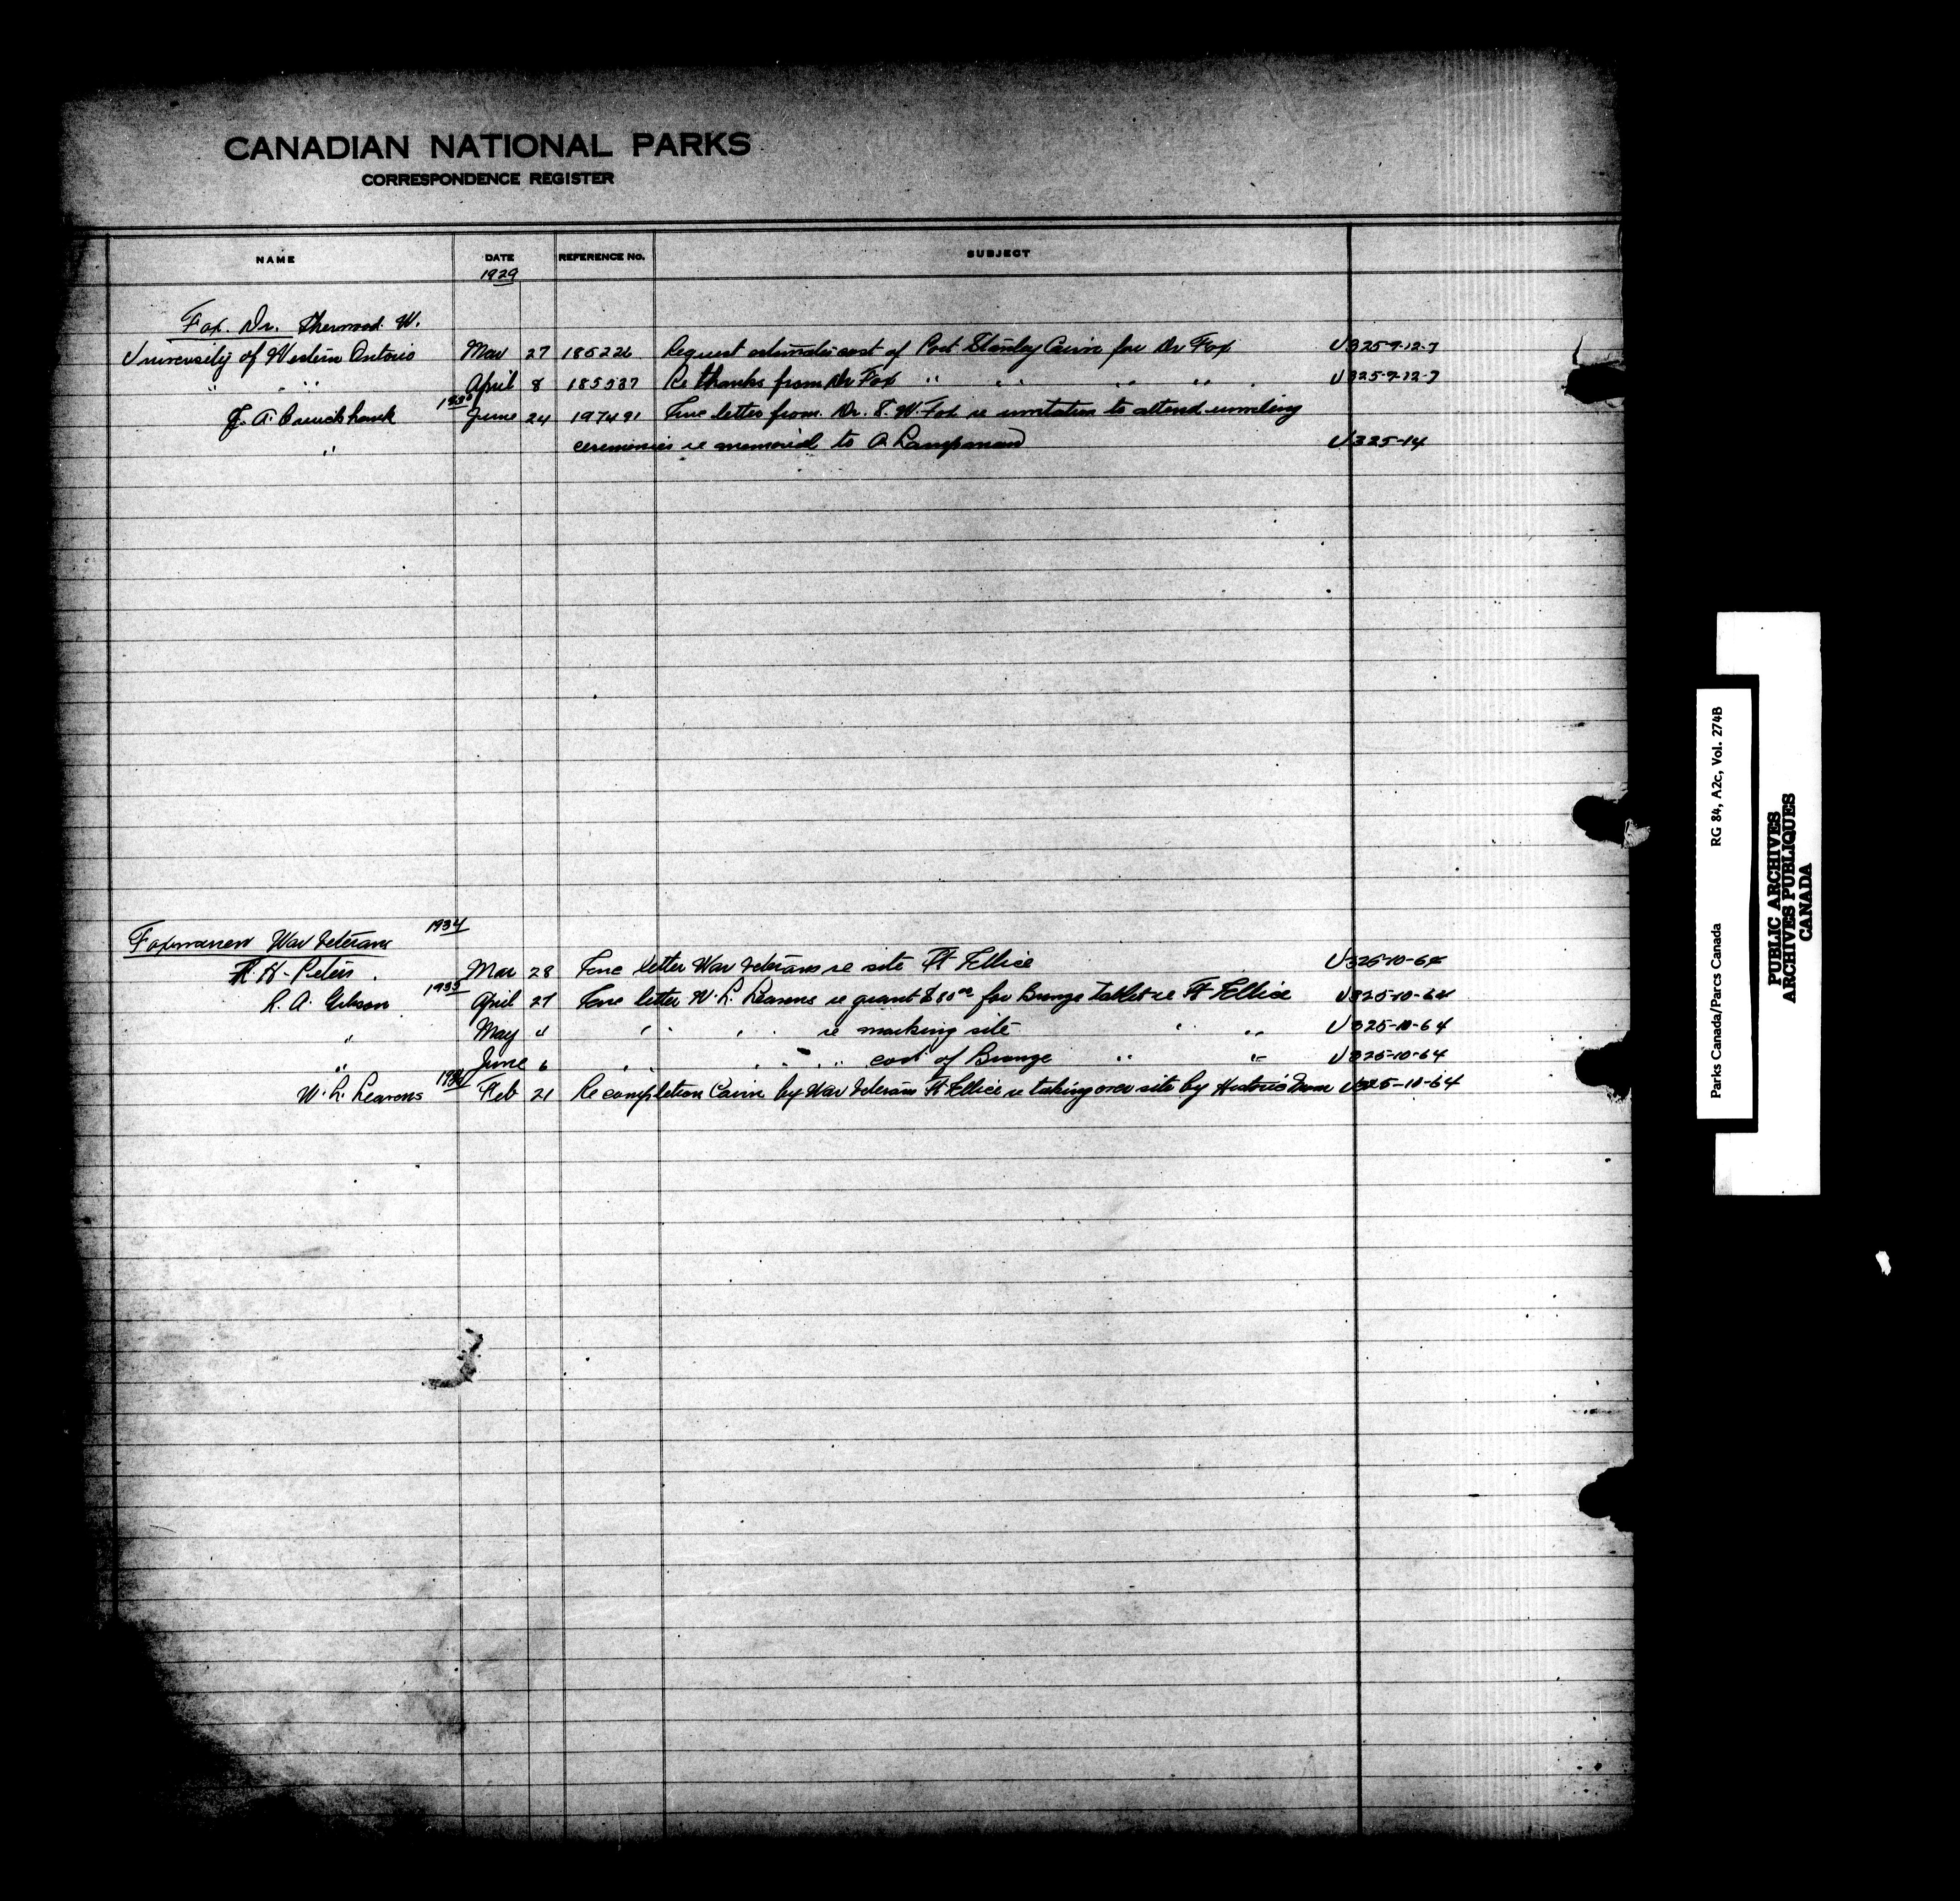 CANADIAN NATIONAL PARKS
CORRESPONDENCE REGISTER
NAME DATE REFERENCE No. SUBJECT
1929
Fox. Dr. Sherwood. W.
University of Western Ontario Mar 27 185226 Request estimate cost of Port Stanley Cairn for Dr Fox U325-9-12-7
" " " April 8 185537 Re thanks from Dr Fox " " " " " U325-9-12-7
1930
A. Cruickshank June 24 197491 Enc letter from Dr. S. W. Fox re invitation to attend unveiling
" ceremonies re memorial to A Lampman U325-14
1934
Foxwarren War Veterans
H. Peters. Mar 28 Enc letter War Veterans re site Ft Ellice U325-10-64
1935
R. A. Gibson April 27 Enc letter W. L. Leavens re grant $80 00 for Bronze Tablet re Ft Ellice U325-10-64
" May " " " re marking site " " U325-10-64
" June 6 " " " cost of Bronze " " U325-10-64
1936
W. L. Leavens Feb 21 Re completion Cairn by War Veterans Ft Ellice re taking over site by Historic U325-10-64
Parks Canada/Parcs Canada RG 84, A2c, Vol. 274B
PUBLIC ARCHIVES
ARCHIVES PUBLIQUES
CANADA